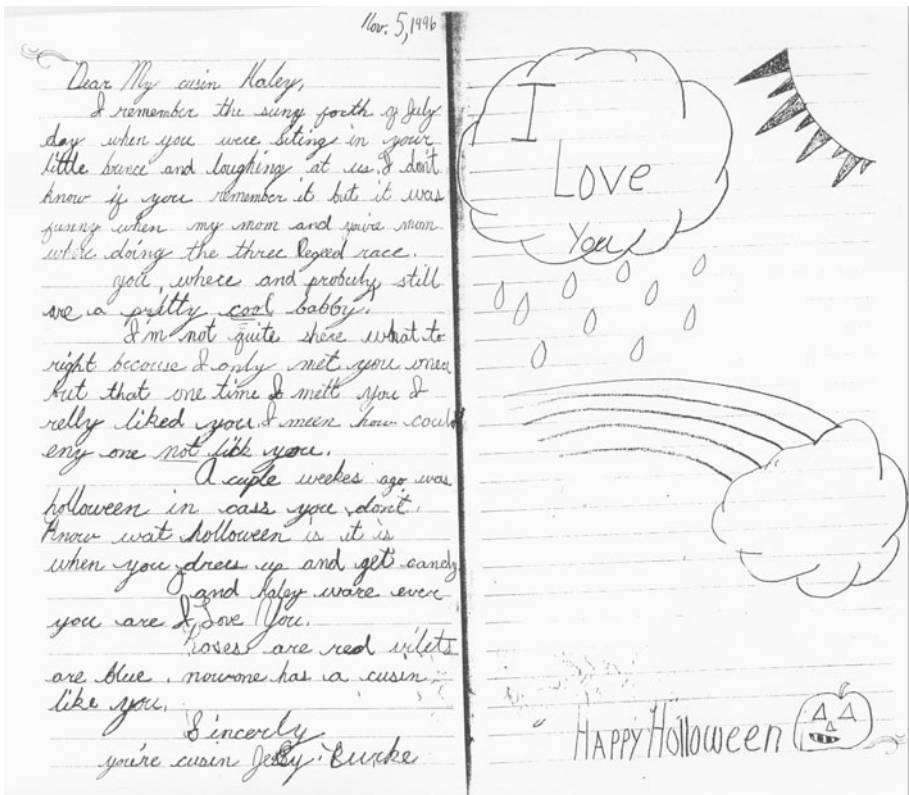 Nov. 5, 1996
Dear My cusin Haley,
I remember the sung forth of July
day when you were siting in your
little brince and loughing at us. I don't
know if you remember it but it was
funny when my mom and you're mom
where doing the three legeed race.
you, where and probuly still
are a pritty cool babby.
I'm not quite shere what to
right because I only met you once
but that one time I mett you I
relly liked you. I meen how could
eny one not lick you.
A cuple weekes ago was
holloween in cass you don't.
Know wat holloween is it is
when you dress up and get candy
and Haley ware ever
you are I Love You.
roses are red vilets
are blue. nowone has a cusin
like you.
Sincerly
you're cusin Jessy. Burke
I
Love
You
HAPPY Holloween